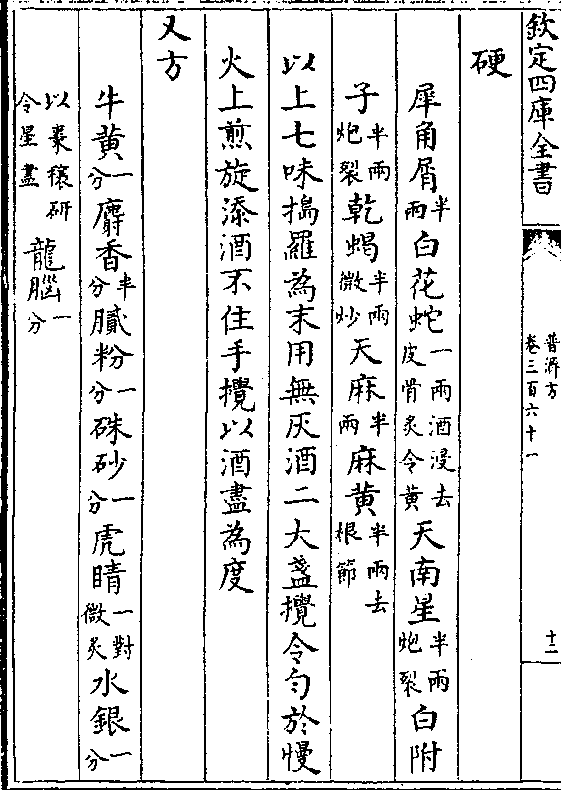 欽定四庫全書
普濟方
卷三百六十一
十二
硬
犀角屑半兩白花蛇一兩酒浸去皮骨炙令黄天南星半兩炮裂白附
子半兩炮裂乾蝎半兩微炒天麻半兩麻黄半兩去根節
以上七味搗羅為末用無灰酒二大盞攪令勻於慢
火上煎旋添酒不住手攪以酒盡為度
又方
牛黄一分麝香半分膩粉一分硃砂一分虎睛一對微炙水銀一分
以棗穰研令星盡龍腦一分